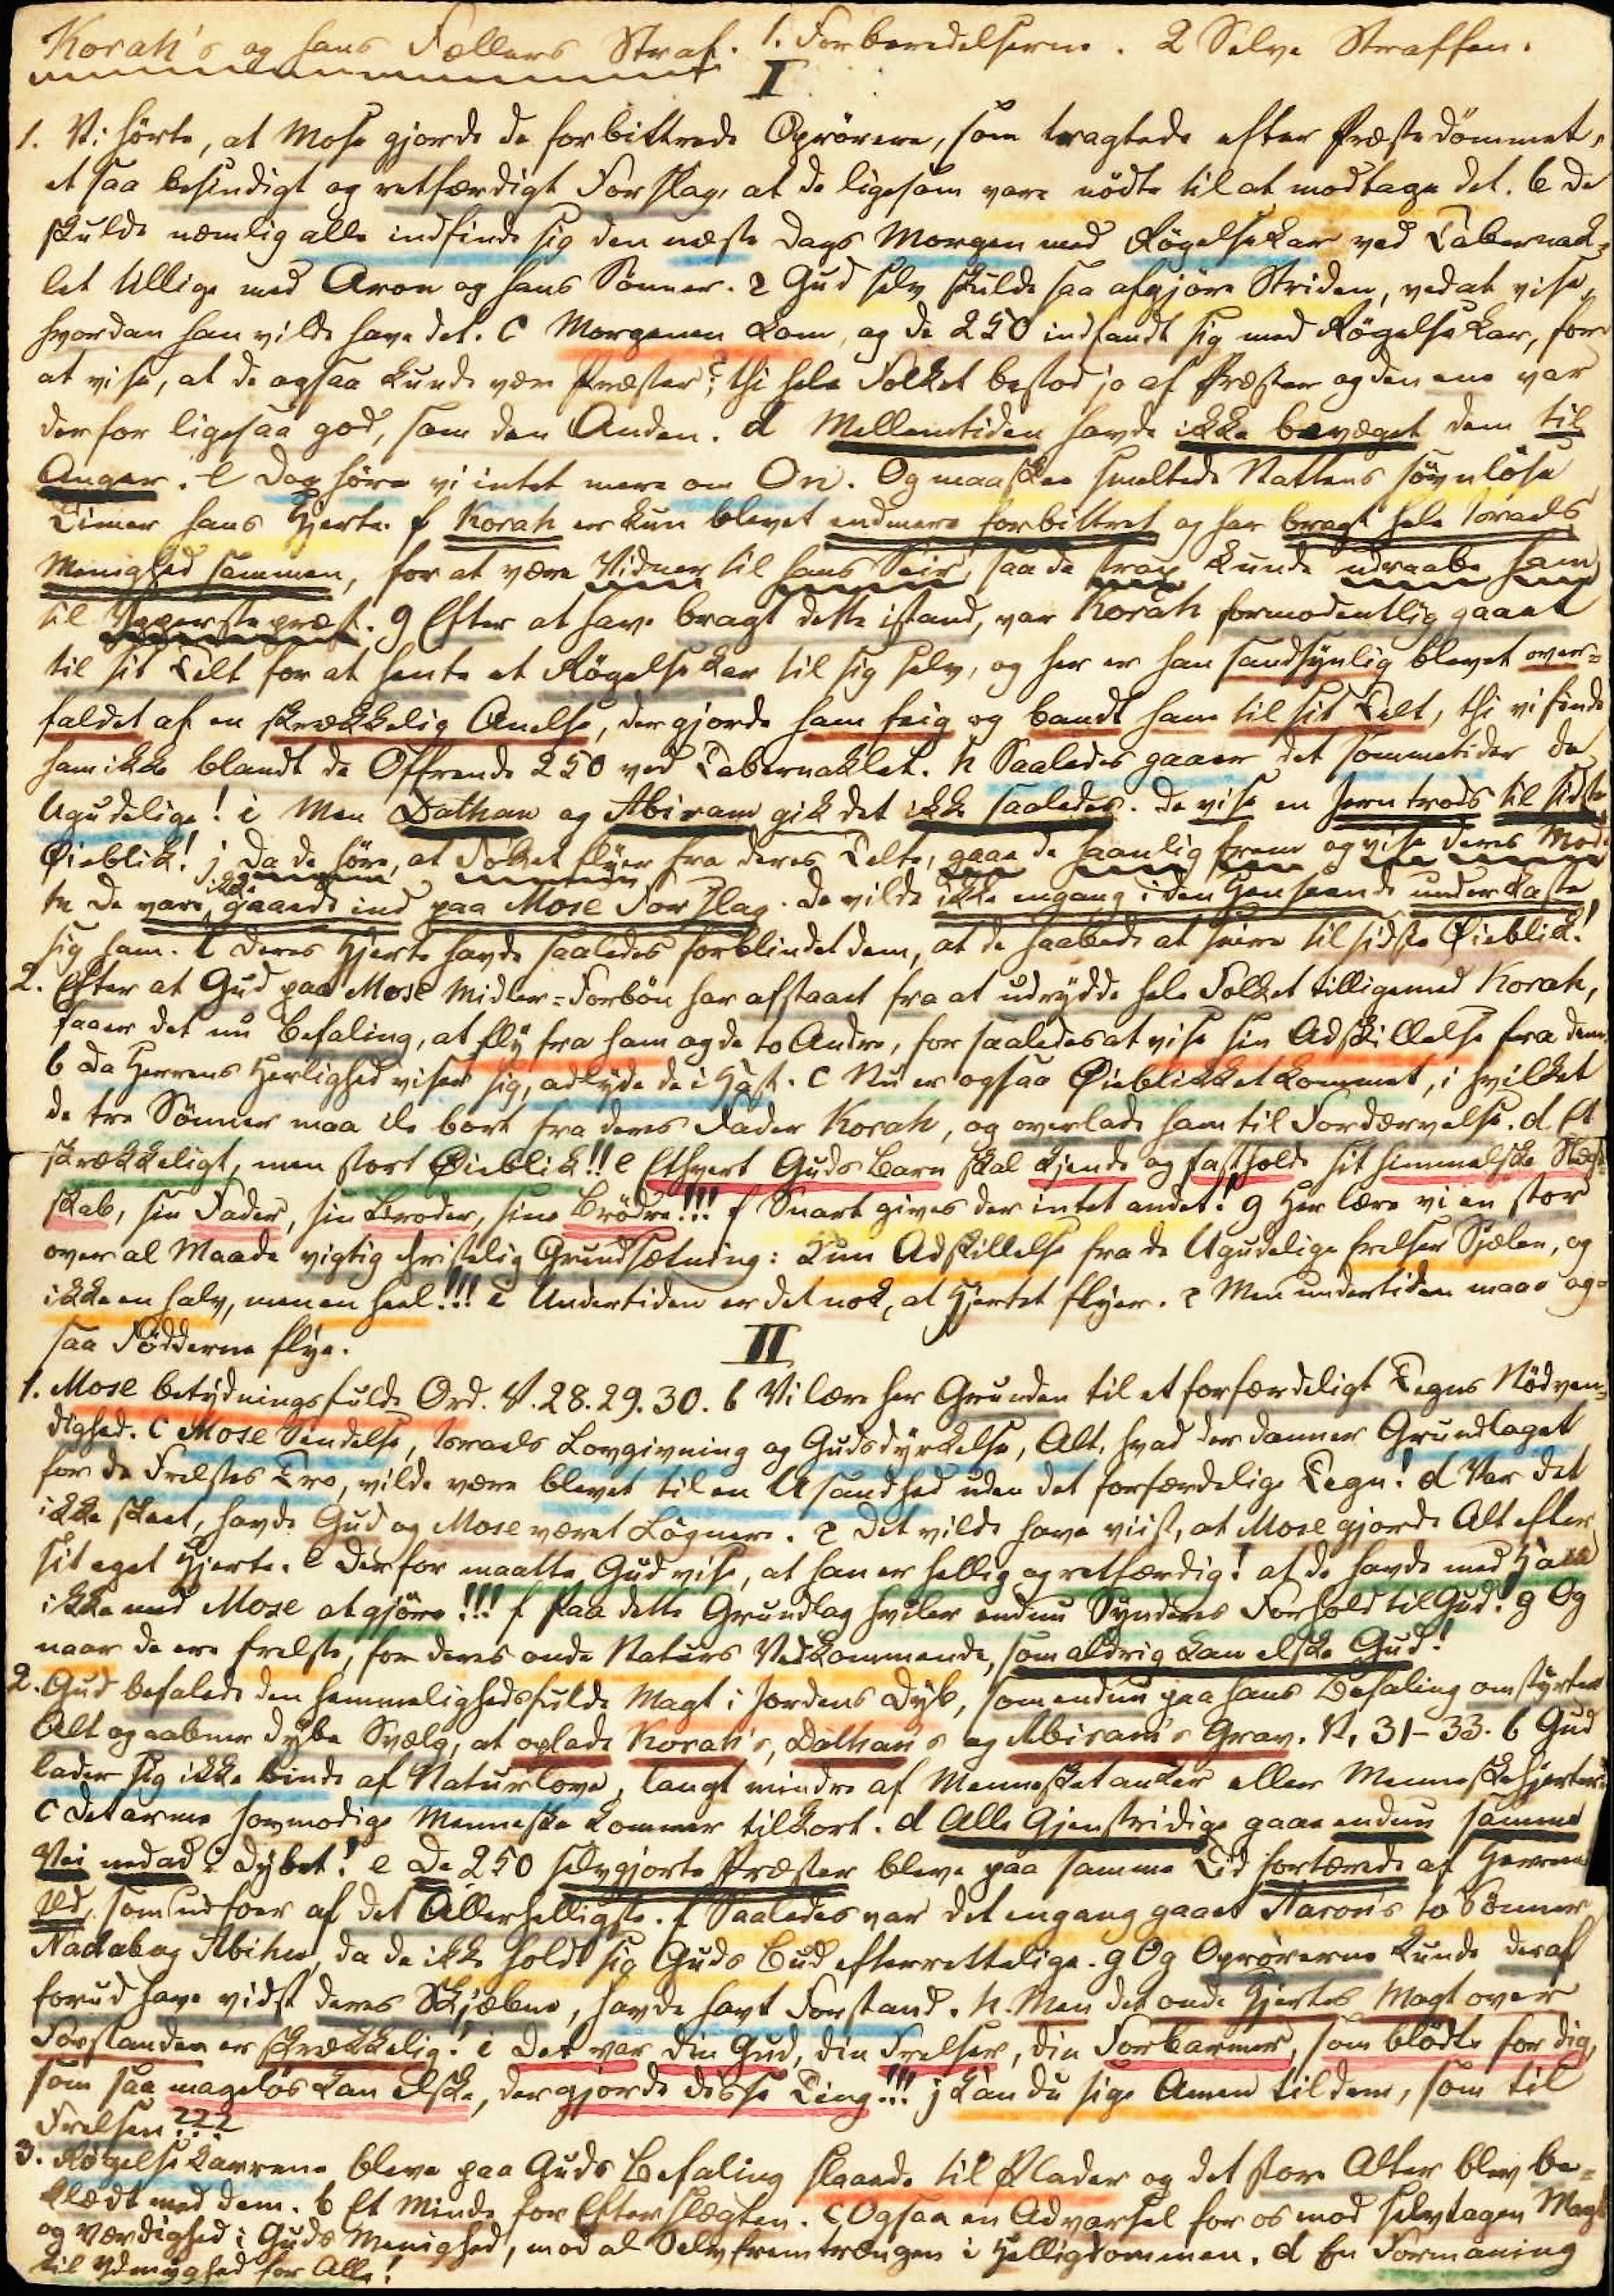 Korah's og hans Fællers Straf. 1. Forberedelserne. 2 Selve Straffen.
I
1. Vi hörte, at Mose gjorde de forbittrede Oprörere, som tragtede efter Præstedömmet,
et saa besindigt og retfærdigt Forslag, at de ligesom vare nödte til at modtage det. b De
skulde nemlig alle indfinde sig den næste Dags Morgen med Rögelsekar ved Tabernak=
let tillige med Aron og hans Sönner. 2 Gud selv skulde saa afgjöre Striden, ved at vise,
hvordan han vilde have det. c Morgenen kom, og de 250 indfandt sig med Rögelsekar, for
at vise, at de ogsaa kunde være Præster; thi hele Folket bestod jo af Præster og den ene var
derfor ligesaa god, som den Anden. d Mellemtiden havde ikke bevæget dem til
Anger. e Dog höre vi intet mere om On. Og maaskee smeltede Nattens sövnlöse
Timer hans Hjerte. f Korah er kun blevet endmere forbittret og har bragt hele Israels
Menighed sammen, for at være Vidner til hans Seir, saa de strax kunde udraabe ham
til Ypperstepræst. g Efter at have bragt dette istand, var Korah formodentlig gaaet
til sit Telt for at hente et Rögelsekar til sig selv, og her er han sandsynlig blevet over=
faldet af en skrækkelig Anelse, der gjorde ham feig og bandt ham til sit Telt, thi vi finde
ham ikke blandt de Offrende 250 ved Tabernaklet. h Saaledes gaaer det sommetider de
Ugudelige! i Men Dathan og Abiram gik det ikke saaledes. De vise en Jerntrods til sidste
Öieblik! j Da de höre, at Folket flyer fra deres Telte, gaae de haanlig frem og vise deres Mod.
k De vare ikke gaaede ind paa Mose Forslag. De vilde ikke engang i den Henseende underkaste
sig ham. l Deres Hjerte havde saaledes forblindet dem, at de haabede at seire til sidste Öieblik!
2. Efter at Gud paa Mose Midler=Forbön har afstaaet fra at udrydde hele Folket tilligemed Korah,
faaer det nu Befaling, at fly fra ham og de to Andre, for saaledes at vise sin Adskillelse fra dem.
b Da Herrens Herlighed viser sig, adlyde de i Hast. c Nu er ogsaa Öieblikket kommet, i hvilket
de tre Sönner maa ile bort fra deres Fader Korah, og overlade ham til Fordærvelse. d Et
skrækkeligt, men stort Öieblik!! e Ethvert Guds Barn skal kjende og fastholde sit himmelske Slægt=
skab, sin Fader, sin Broder, sine Brödre!!! f Snart gives der intet andet! g Her lære vi en stor
over al Maade vigtig christelig Grundsætning: Kun Adskillelse fra de Ugudelige frelser Sjælen, og
ikke en halv, men en heel!!! i Undertiden er det nok, at Hjertet flyer. 2 Men undertiden maae og=
saa Födderne flye.
II
1. Mose betydningsfulde Ord. V. 28. 29. 30. b Vi lære her Grunden til et forfærdeligt Tegns Nödven=
dighed. c Mose Sendelse, Israels Lovgivning og Gudsdyrkelse, Alt, hvad der danner Grundlaget
for de Frelstes Tro, vilde være blevet til en Usandhed uden det forfærdelige Tegn! d Var det
ikke skeet, havde Gud og Mose været Lögnere. 2 Det vilde have viist, at Mose gjorde Alt efter
sit eget Hjerte. e Derfor maatte Gud vise, at han er hellig og retfærdig! at de havde med Ham
ikke med Mose at gjöre!!! f Paa dette Grundlag hviler endnu Synderes Forhold til Gud! g Og
naar de ere frelste, for deres onde Naturs Vedkommende, som aldrig kan elske Gud!
2. Gud befalede den hemmelighedsfulde Magt i Jordens Dyb, som endnu paa hans Befaling omstyrter
Alt og aabner dybe Svælg, at oplade Korah's, Dathan's og Abiram's Grav. V. 31-33. b Gud
lader sig ikke binde af Naturlove, langt mindre af Mennesketanker eller Menneskehjerter!
c Det arme hovmodige Menneske kommer tilkort. d Alle Gjenstridige gaae endnu samme
Vei nedad i Dybet! e De 250 selvgjorte Præster bleve paa samme Tid fortærede af Herrens
Ild, som udfoer af det Allerhelligste. f Saaledes var det engang gaaet Aaron's to Sönner
Nadab og Abihu, da de ikke holdt sig Guds Bud efterrettelige. g Og Oprörerne kunde deraf
forud have vidst deres Skjæbne, havde havt Forstand. h. Men det onde Hjertes Magt over
Forstanden er skrækkelig! i Det var din Gud, din Frelser, din Forbarmer, som blödte for dig,
som saa magelös kan elske, der gjorde disse Ting!!! j Kan du sige Amen til dem, som til
Frelsen???
3. Rögelsekarrene bleve paa Guds Befaling slaaede til Plader og det store Alter blev be=
klædt med dem. b Et Minde for Efterslægten. c Ogsaa en Advarsel for os mod selvtagen Magt
og Værdighed i Guds Menighed, mod al Selvfremtrængen i Helligdommen. d En Formaning
til Ydmyghed for Alle!